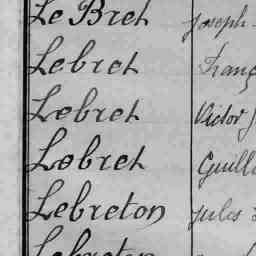 Le Bret Joseph
Lebret Franç
Lebret Victor J
Lebret Guill
Lebreton Jules
Lebreton